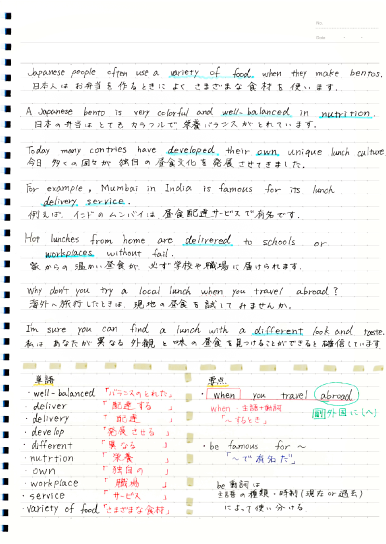 No.
Date
Japanese people often use a variety of food when they make bentos.
日本人はお弁当を作るときによくさまざまな食材を使います.
A Japanese bento is very colorful and well-balanced in nutrition.
日本の弁当はとてもカラフルで栄養バランスがとれています.
Today many contries have developed their own unique lunch culture
今日多くの国々が独自の昼食文化を発展させてきました.
For example, Mumbai in India is famous for its lunch
delivery service.
例えば、インドのムンバイは昼食配達サービスで有名です.
Hot lunches from home are delivered to schools or
workplaces without fail.
家からの温かい昼食が、必ず学校や職場に届けられます.
Why don't you try a local lunch when you travel abroad?
海外へ旅行したときは、現地の昼食を試してみませんか.
I'm sure you can find a lunch with a different look and taste.
私はあなたが異なる外観と味の昼食を見つけることができると確信しています
単語
・well-balanced 「バランスのとれた」
・deliver 「配達する」
・delivery 「配達」
・develop 「発展させる」
・different 「異なる」
・nutrtion 「栄養」
・own 「独自の」
・workplace 「職場」
・service 「サービス」
・variety of food 「さまざまな食材」
要点
・when you travel abroad
when + 主語+動詞
「〜するとき」
副 外国に(へ)
・be famous for 〜
「〜で有名だ」
be動詞は
主語の種類・時制(現在or過去)
によって使い分ける